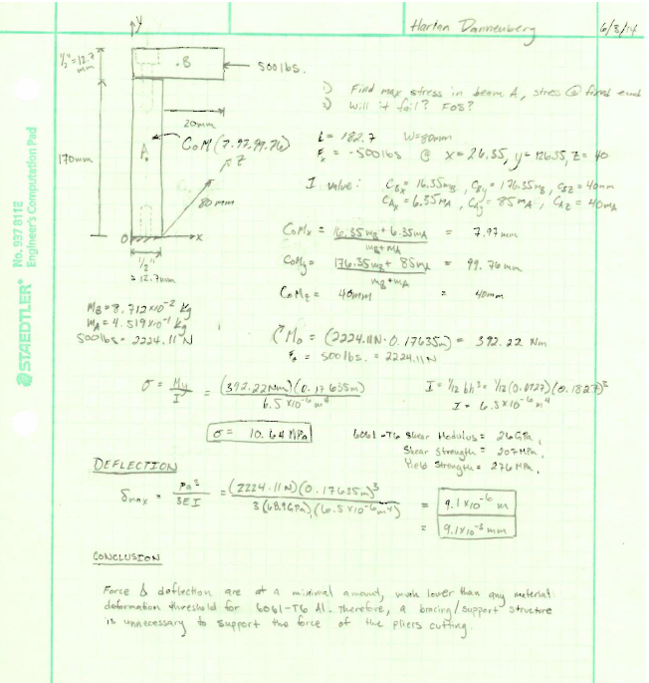 Harlan Dannenberg 6/3/14
y
1/2" = 12.7 mm
.B
500 lbs.
1) Find max stress in beam A, stress @ fixed end
2) Will it fail? FOS?
20mm
L = 182.7 W = 80mm
CoM (7.97, 99.76)
F = -500lbs @ x = 26.35, y = 176.35, z = 40
170mm
A
z
I value: CBx = 16.35mB, CBy = 176.35mB, CBz = 40mm
CAx = 6.35mA, CAy = 85mA, CAz = 40mA
80 mm
CoMx = 16.35mB + 6.35mA / mB+mA = 7.97mm
O x
1/2" = 12.7mm
CoMy = 176.35mB + 85mA / mB+mA = 99.76mm
CoMz = 40mm = 40mm
MB = 8.712x10^-2 kg
mA = 4.519x10^-1 kg
500lbs = 2224.11 N
Mo = (2224.11N · 0.17635m) = 392.22 Nm
= 500lbs. = 2224.11N
σ = My / I = (392.22Nm)(0.17635m) / 6.5x10^-6 m^4
I = 1/12 bh^3 = 1/12(0.0127)(0.1827)^3
I = 6.5x10^-6 m^4
σ = 10.64 MPa
6061-T6 Shear Modulus = 26GPa,
Shear Strength = 207MPa,
Yield Strength = 276MPa,
DEFLECTION
δmax = Pa^3 / 3EI = (2224.11N)(0.17635m)^3 / 3(68.9GPa)(6.5x10^-6 m^4) = 9.1x10^-6 m
= 9.1x10^-3 mm
CONCLUSION
Force & deflection are at a minimal amount, much lower than any material
deformation threshold for 6061-T6 Al. Therefore, a bracing/support structure
is unnecessary to support the force of the pliers cutting.
STAEDTLER® No. 937 811E
Engineer's Computation Pad